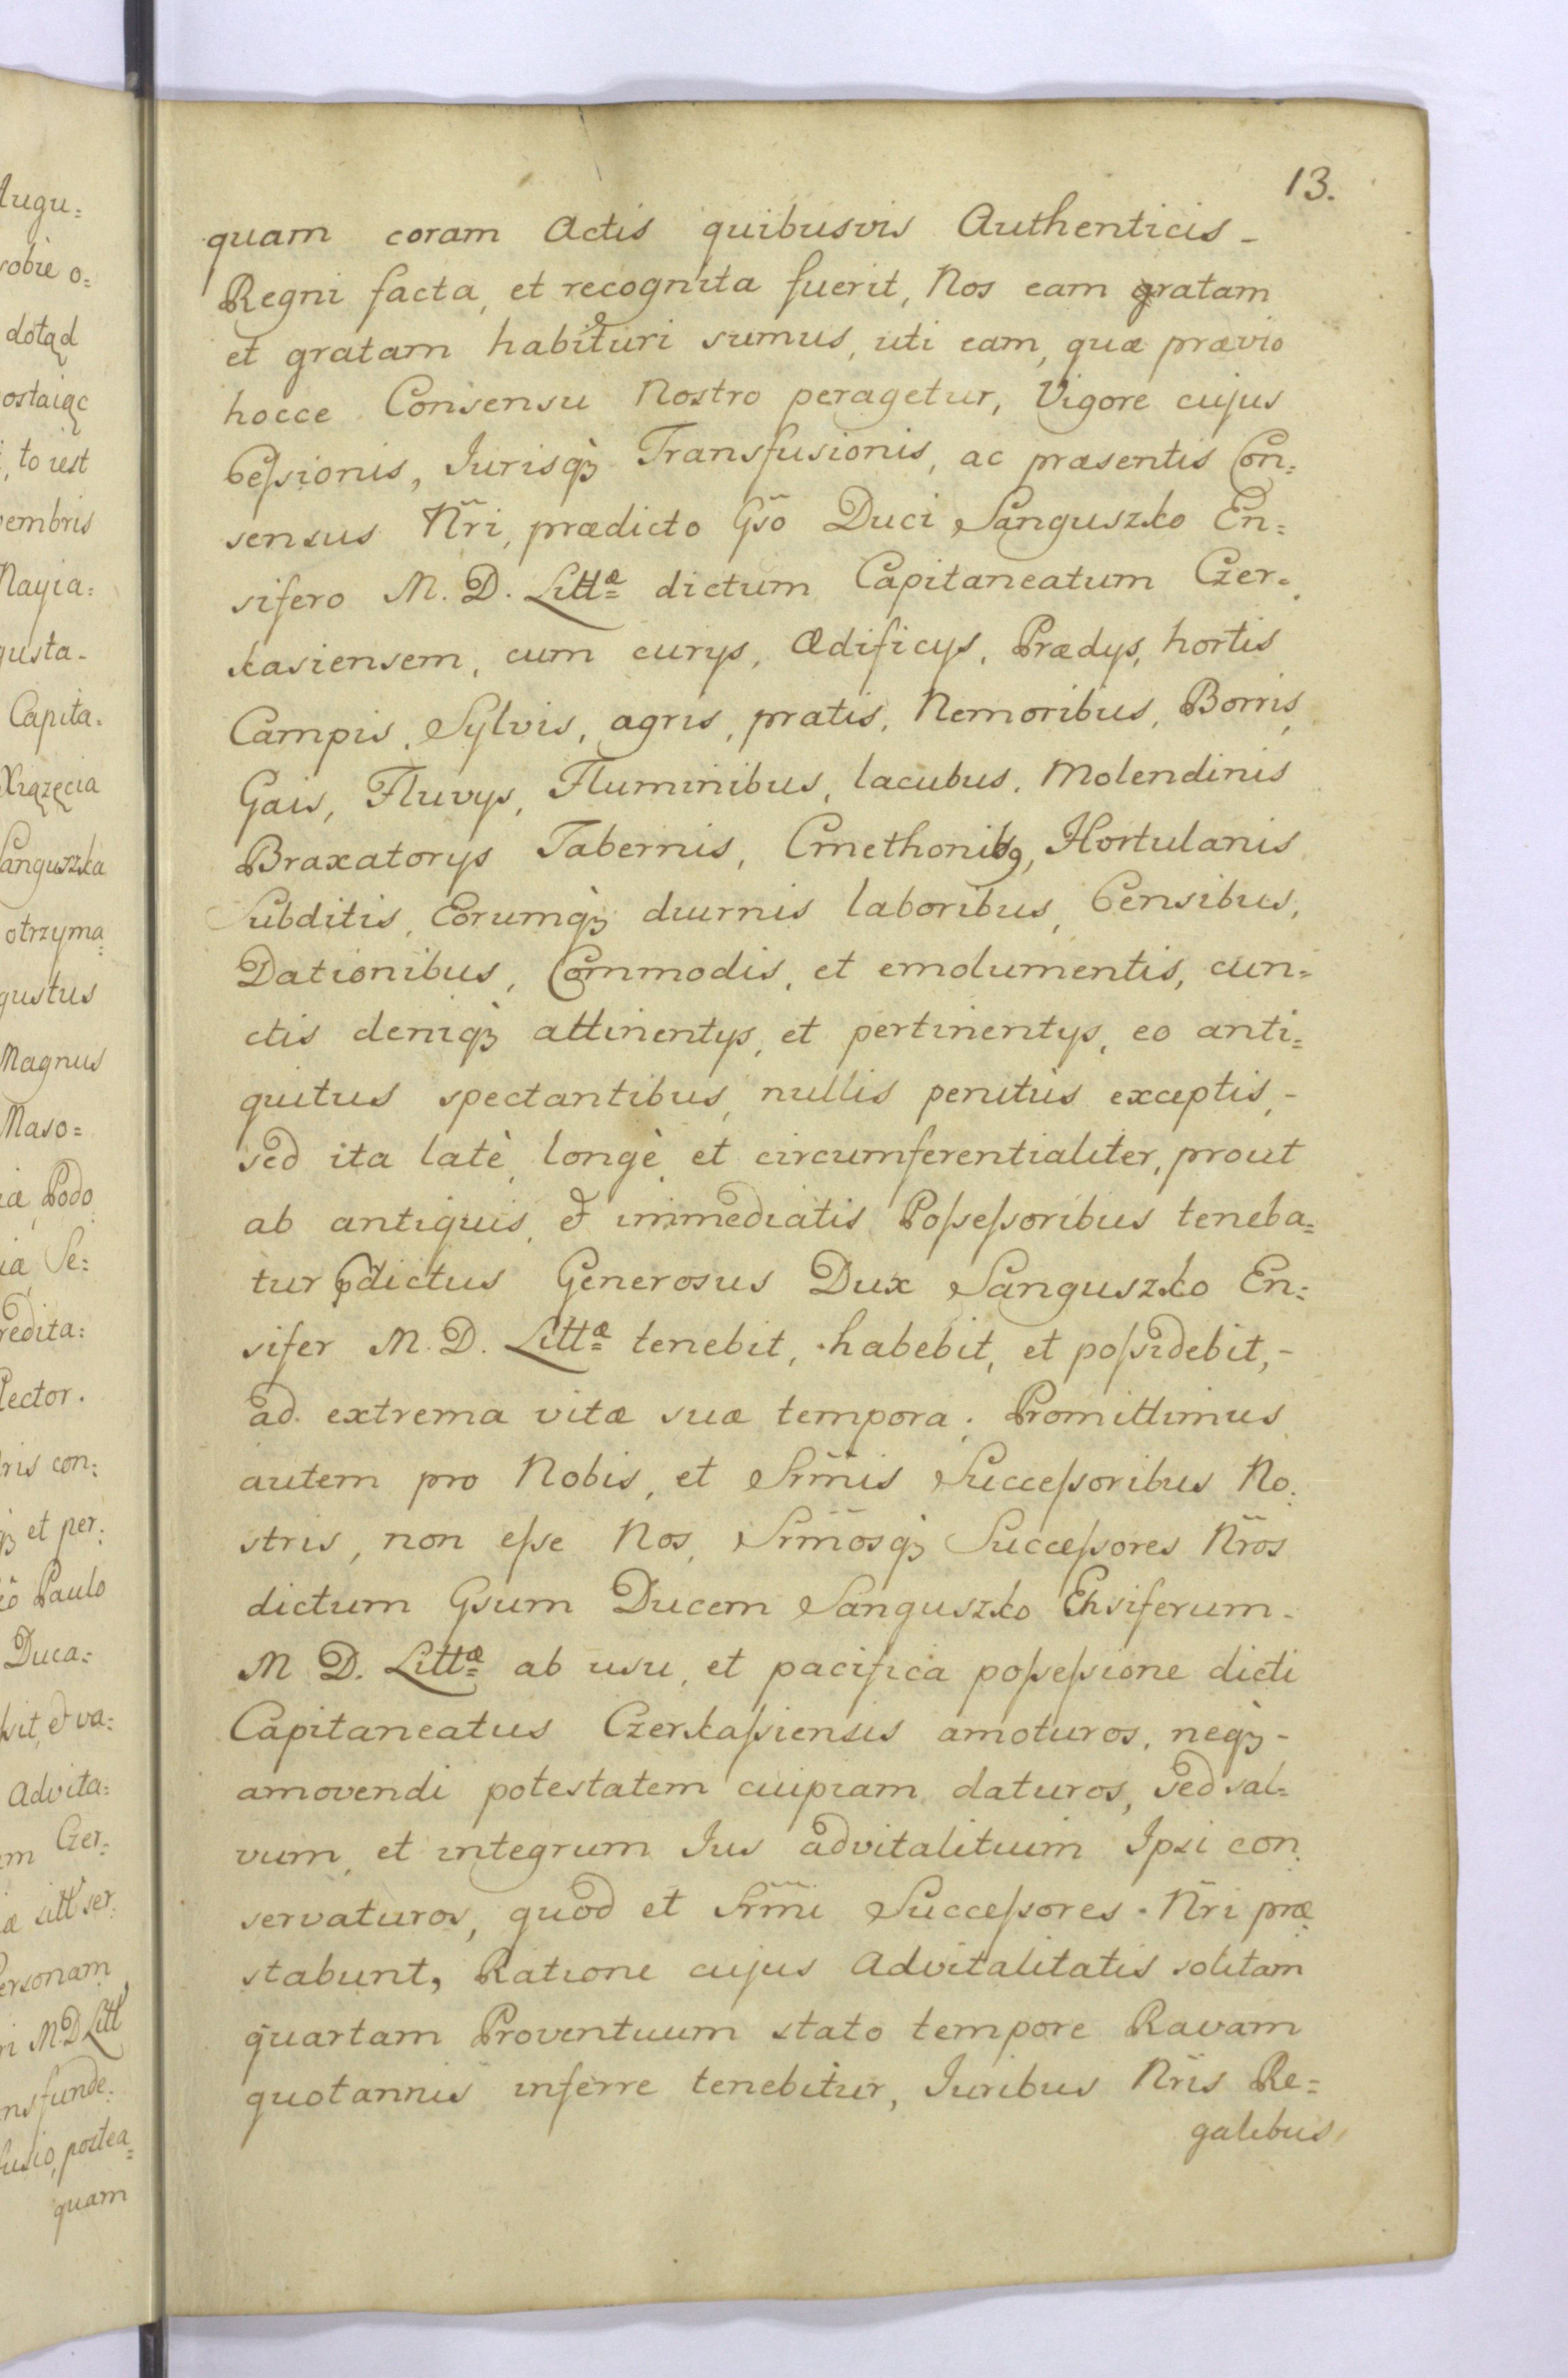 13.
quam coram Actis quibusvis Authenticis -
Regni facta, et recognita fuerit, Nos eam gratam
et gratam habituri sumus, uti eam, quæ prævio
hocce Consensu Nostro peragetur, Vigore cujus
Ceſsionis, Jurisqꝫ Transfusionis, ac præsentis Con=
sensus Nr̃i, prædicto Gsõ Duci Sanguszko En=
sifero M. D. Littæ dictum Capitaneatum Czer=
kasiensem, cum curys, Ædificys, Prædys, hortis
Campis, Sylvis, agris, pratis, Nemoribus, Borris,
Gais, Fluvys, Fluminibus, lacubus, Molendinis
Braxatorys Tabernis, Cmethonibꝰ, Hortulanis
Subditis, Eorumqꝫ diurnis laboribus, Censibus,
Dationibus, Commodis, et emolumentis, cun=
ctis deniqꝫ attinentys, et pertinentys, eo anti=
quitus spectantibus, nullis penitùs exceptis, -
sed ita latè, longè, et circumferentialiter, prout
ab antiquis, & immediatis Poſseſsoribus teneba=
tur pdictus Generosus Dux Sanguszko En=
sifer M. D. Littæ tenebit, habebit, et poſsidebit, -
ad extrema vitæ suæ tempora. Promittimus
autem pro Nobis, et Srm̃is Succeſsoribus No=
stris, non eſse Nos, Srm̃osqꝫ Succeſsores Nr̃os
dictum Gsum Ducem Sanguszko Ensiferum -
M D. Littæ ab usu, et pacifica poſseſsione dicti
Capitaneatus Czerkaſsiensis amoturos, neqꝫ -
amovendi potestatem cuipiam daturos, sed sal=
vum, et integrum Jus advitalitium Ipsi con=
servaturos, quod et Srm̃i Succeſsores Nr̃i præ=
stabunt, Ratione cujus Advitalitatis solitam
quartam Proventuum stato tempore Ravam
quotannis inferre tenebitur, Juribus Nr̃is Re=
galibus,